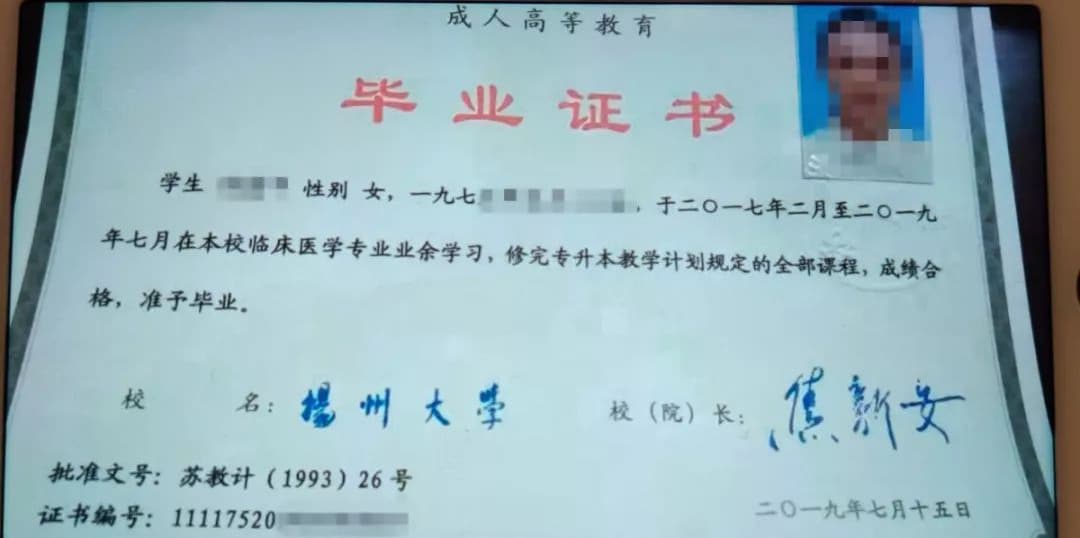 成人高等教育
毕业证书
学生 性别 女，一九七 ，于二〇一七年二月至二〇一九
年七月在本校临床医学专业业余学习，修完专升本教学计划规定的全部课程，成绩合
格，准予毕业。
校 名：扬州大学 校（院）长：焦新安
批准文号：苏教计（1993）26号
证书编号：11117520
二〇一九年七月十五日